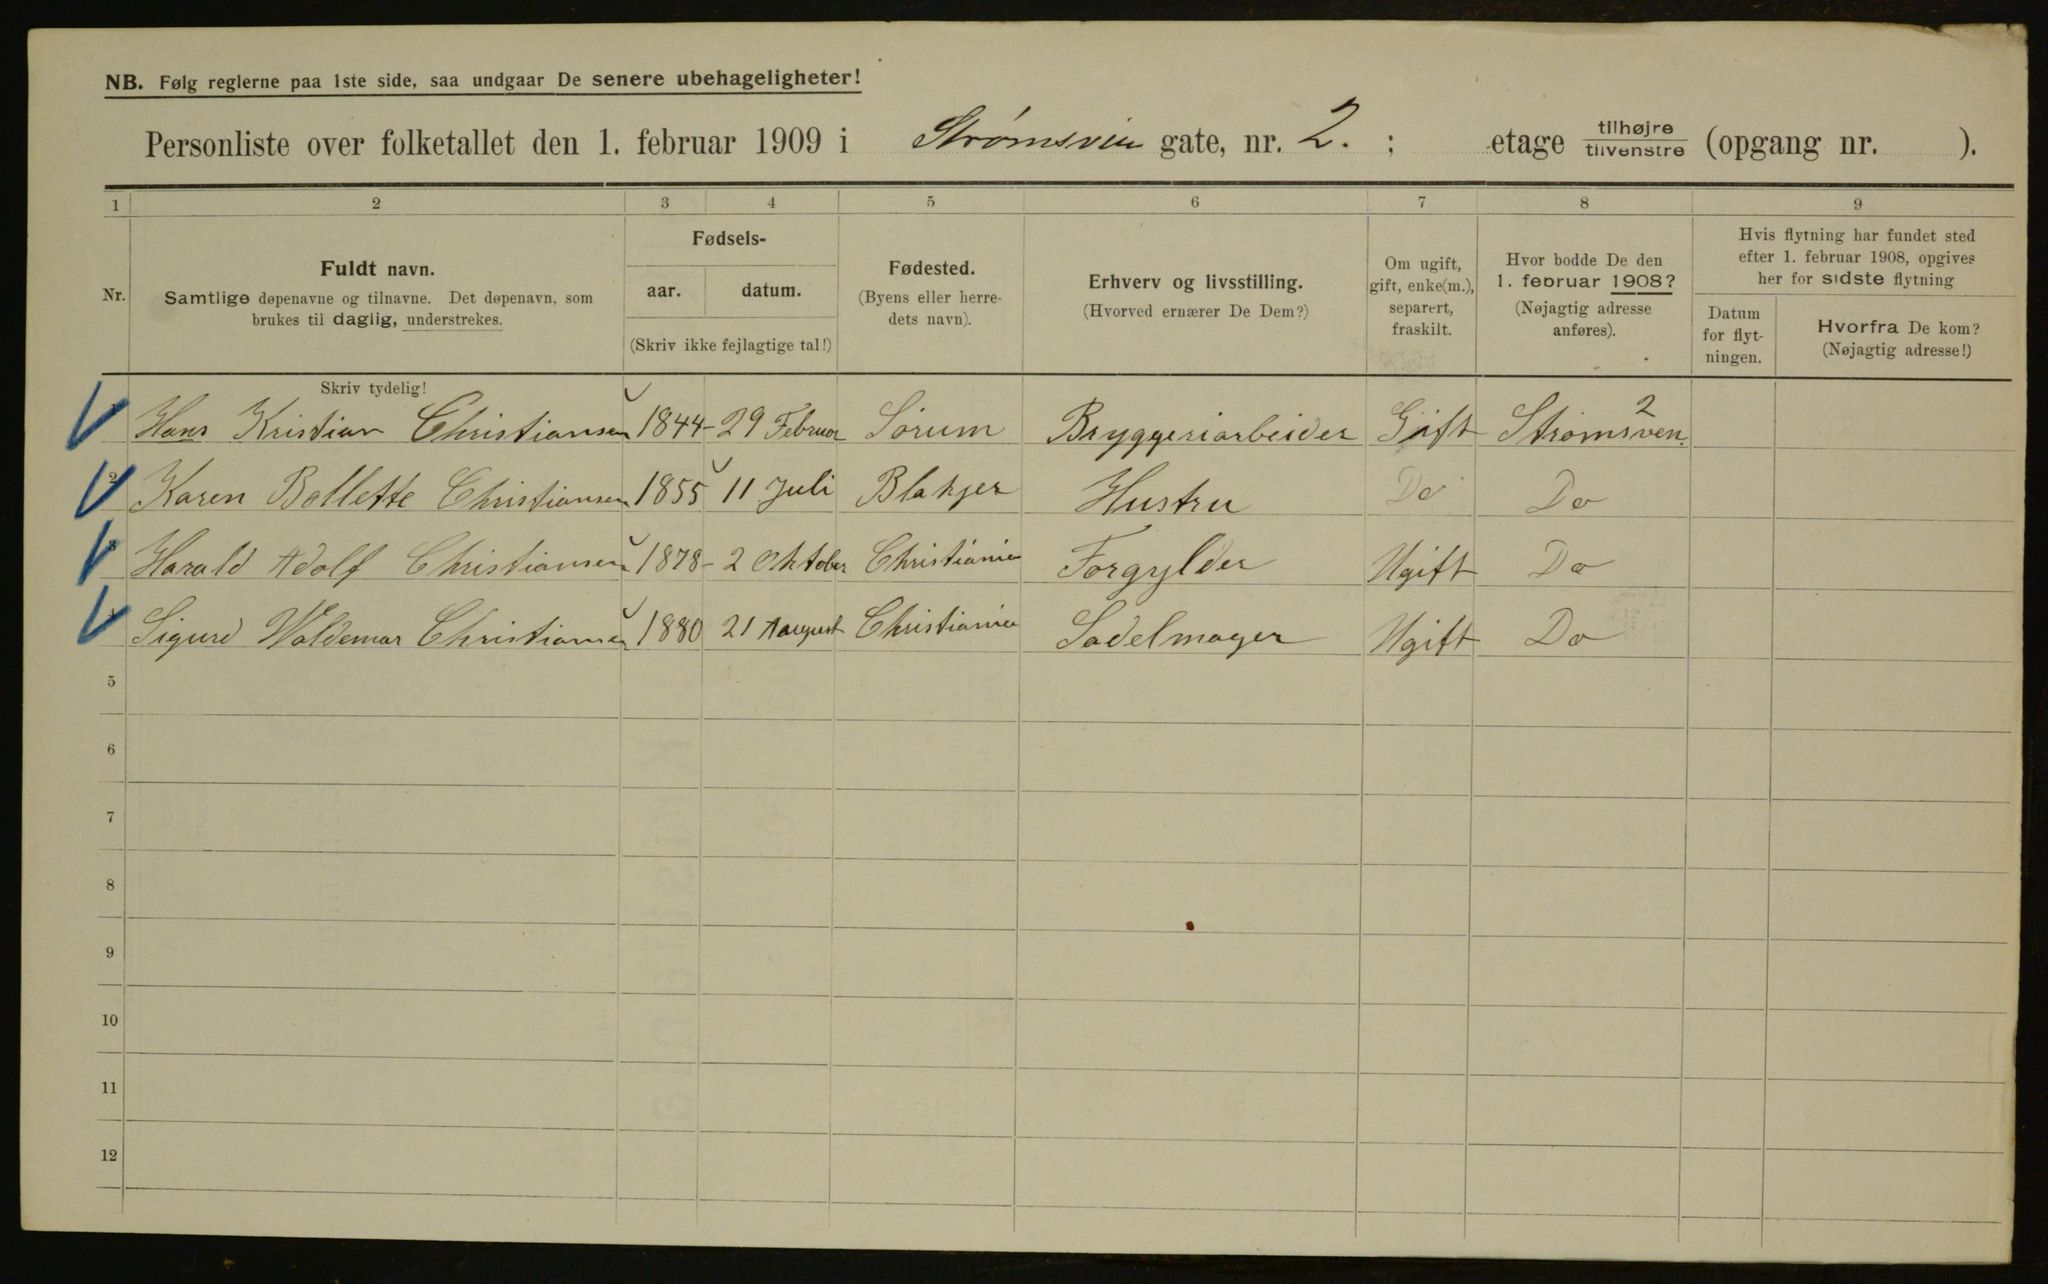 NB. Følg reglerne paa 1ste side, saa undgaar De senere ubehageligheter!
Personliste over folketallet den 1. februar 1909 i Strømsvien gate, nr. 2. ; etage tilhøjre tilvenstre (opgang nr. ).
1 2 3 4 5 6 7 8 9
Nr.
Fuldt navn.
Samtlige døpenavne og tilnavne. Det døpenavn, som
brukes til daglig, understrekes.
Skriv tydelig!
Fødsels-
aar. datum.
(Skriv ikke fejlagtige tal!)
Fødested.
(Byens eller herre-
dets navn).
Erhverv og livsstilling.
(Hvorved ernærer De Dem?)
Om ugift,
gift, enke(m.),
separert,
fraskilt.
Hvor bodde De den
1. februar 1908?
(Nøjagtig adresse
anføres).
Hvis flytning har fundet sted
efter 1. februar 1908, opgives
her for sidste flytning
Datum
for flyt-
ningen.
Hvorfra De kom?
(Nøjagtig adresse!)
1 Hans Kristian Christiansen 1844 - 29 Februar Sørum Bryggeriarbeider Gift Strømsven 2
2 Karen Bollette Christiansen 1855 11 Juli Blakjer Hustru Do Do
3 Harald Adolf Christiansen 1878 - 2 Oktober Christiania Forgylder Ugift Do
4 Sigurd Waldemar Christiansen 1880 21 August Christiania Sadelmager Ugift Do
5
6
7
8
9
10
11
12